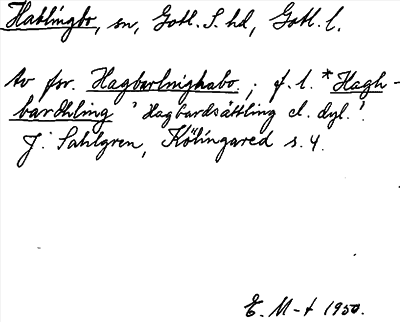 Hablingbo, sn, Gotl. S. hd, Gotl. l.
av fsv. Hagbarlnighabo; f. l. *Hagh-
bardhling 'Hagbardsättling el. dyl.'.
J. Sahlgren, Kölingared s. 4.
E. M-t 1950.